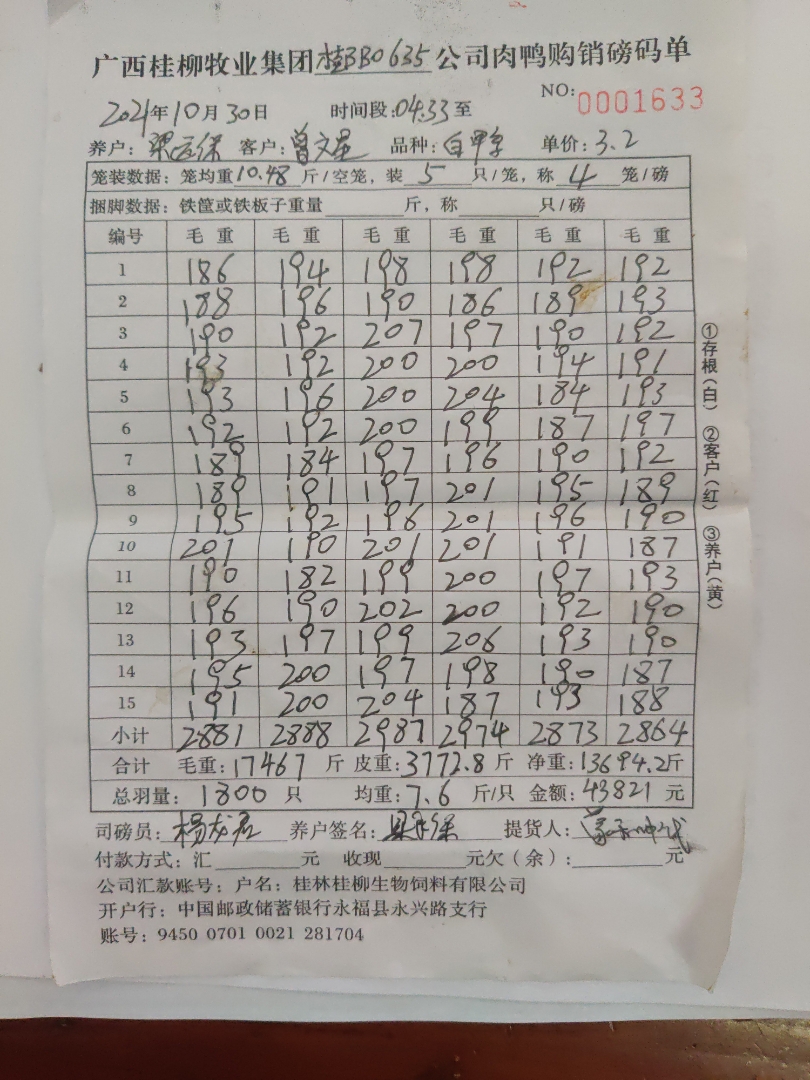 广西桂柳牧业集团桂BB0635公司肉鸭购销磅码单
NO: 0001633
2021年10月30日 时间段:04:33至
养户: 梁运保 客户: 曾文星 品种: 白甲字 单价: 3.2
笼装数据: 笼均重10.48斤/空笼, 装5只/笼, 称4笼/磅
捆脚数据: 铁筐或铁板子重量 斤, 称 只/磅
编号 毛重 毛重 毛重 毛重 毛重 毛重
1 186 194 198 198 192 192
2 188 196 190 186 189 193
3 190 192 207 197 190 192
4 193 192 200 200 194 191
5 193 196 200 204 184 193
6 192 192 200 199 187 197
7 189 184 197 196 190 192
8 189 191 197 201 195 189
9 195 192 196 201 196 190
10 201 190 201 201 191 187
11 190 182 199 200 197 193
12 196 190 202 200 192 190
13 193 197 199 206 193 190
14 195 200 197 198 190 187
15 191 200 204 187 193 188
小计 2881 2888 2987 2974 2873 2864
合计 毛重: 17467斤 皮重: 3772.8斤 净重: 13694.2斤
总羽量: 1800只 均重: 7.6斤/只 金额: 43821元
司磅员: 杨龙 养户签名: 提货人:
付款方式: 汇 元 收现 元欠(余): 元
公司汇款账号: 户名: 桂林桂柳生物饲料有限公司
开户行: 中国邮政储蓄银行永福县永兴路支行
账号: 9450 0701 0021 281704
①存根(白) ②客户(红) ③养户(黄)